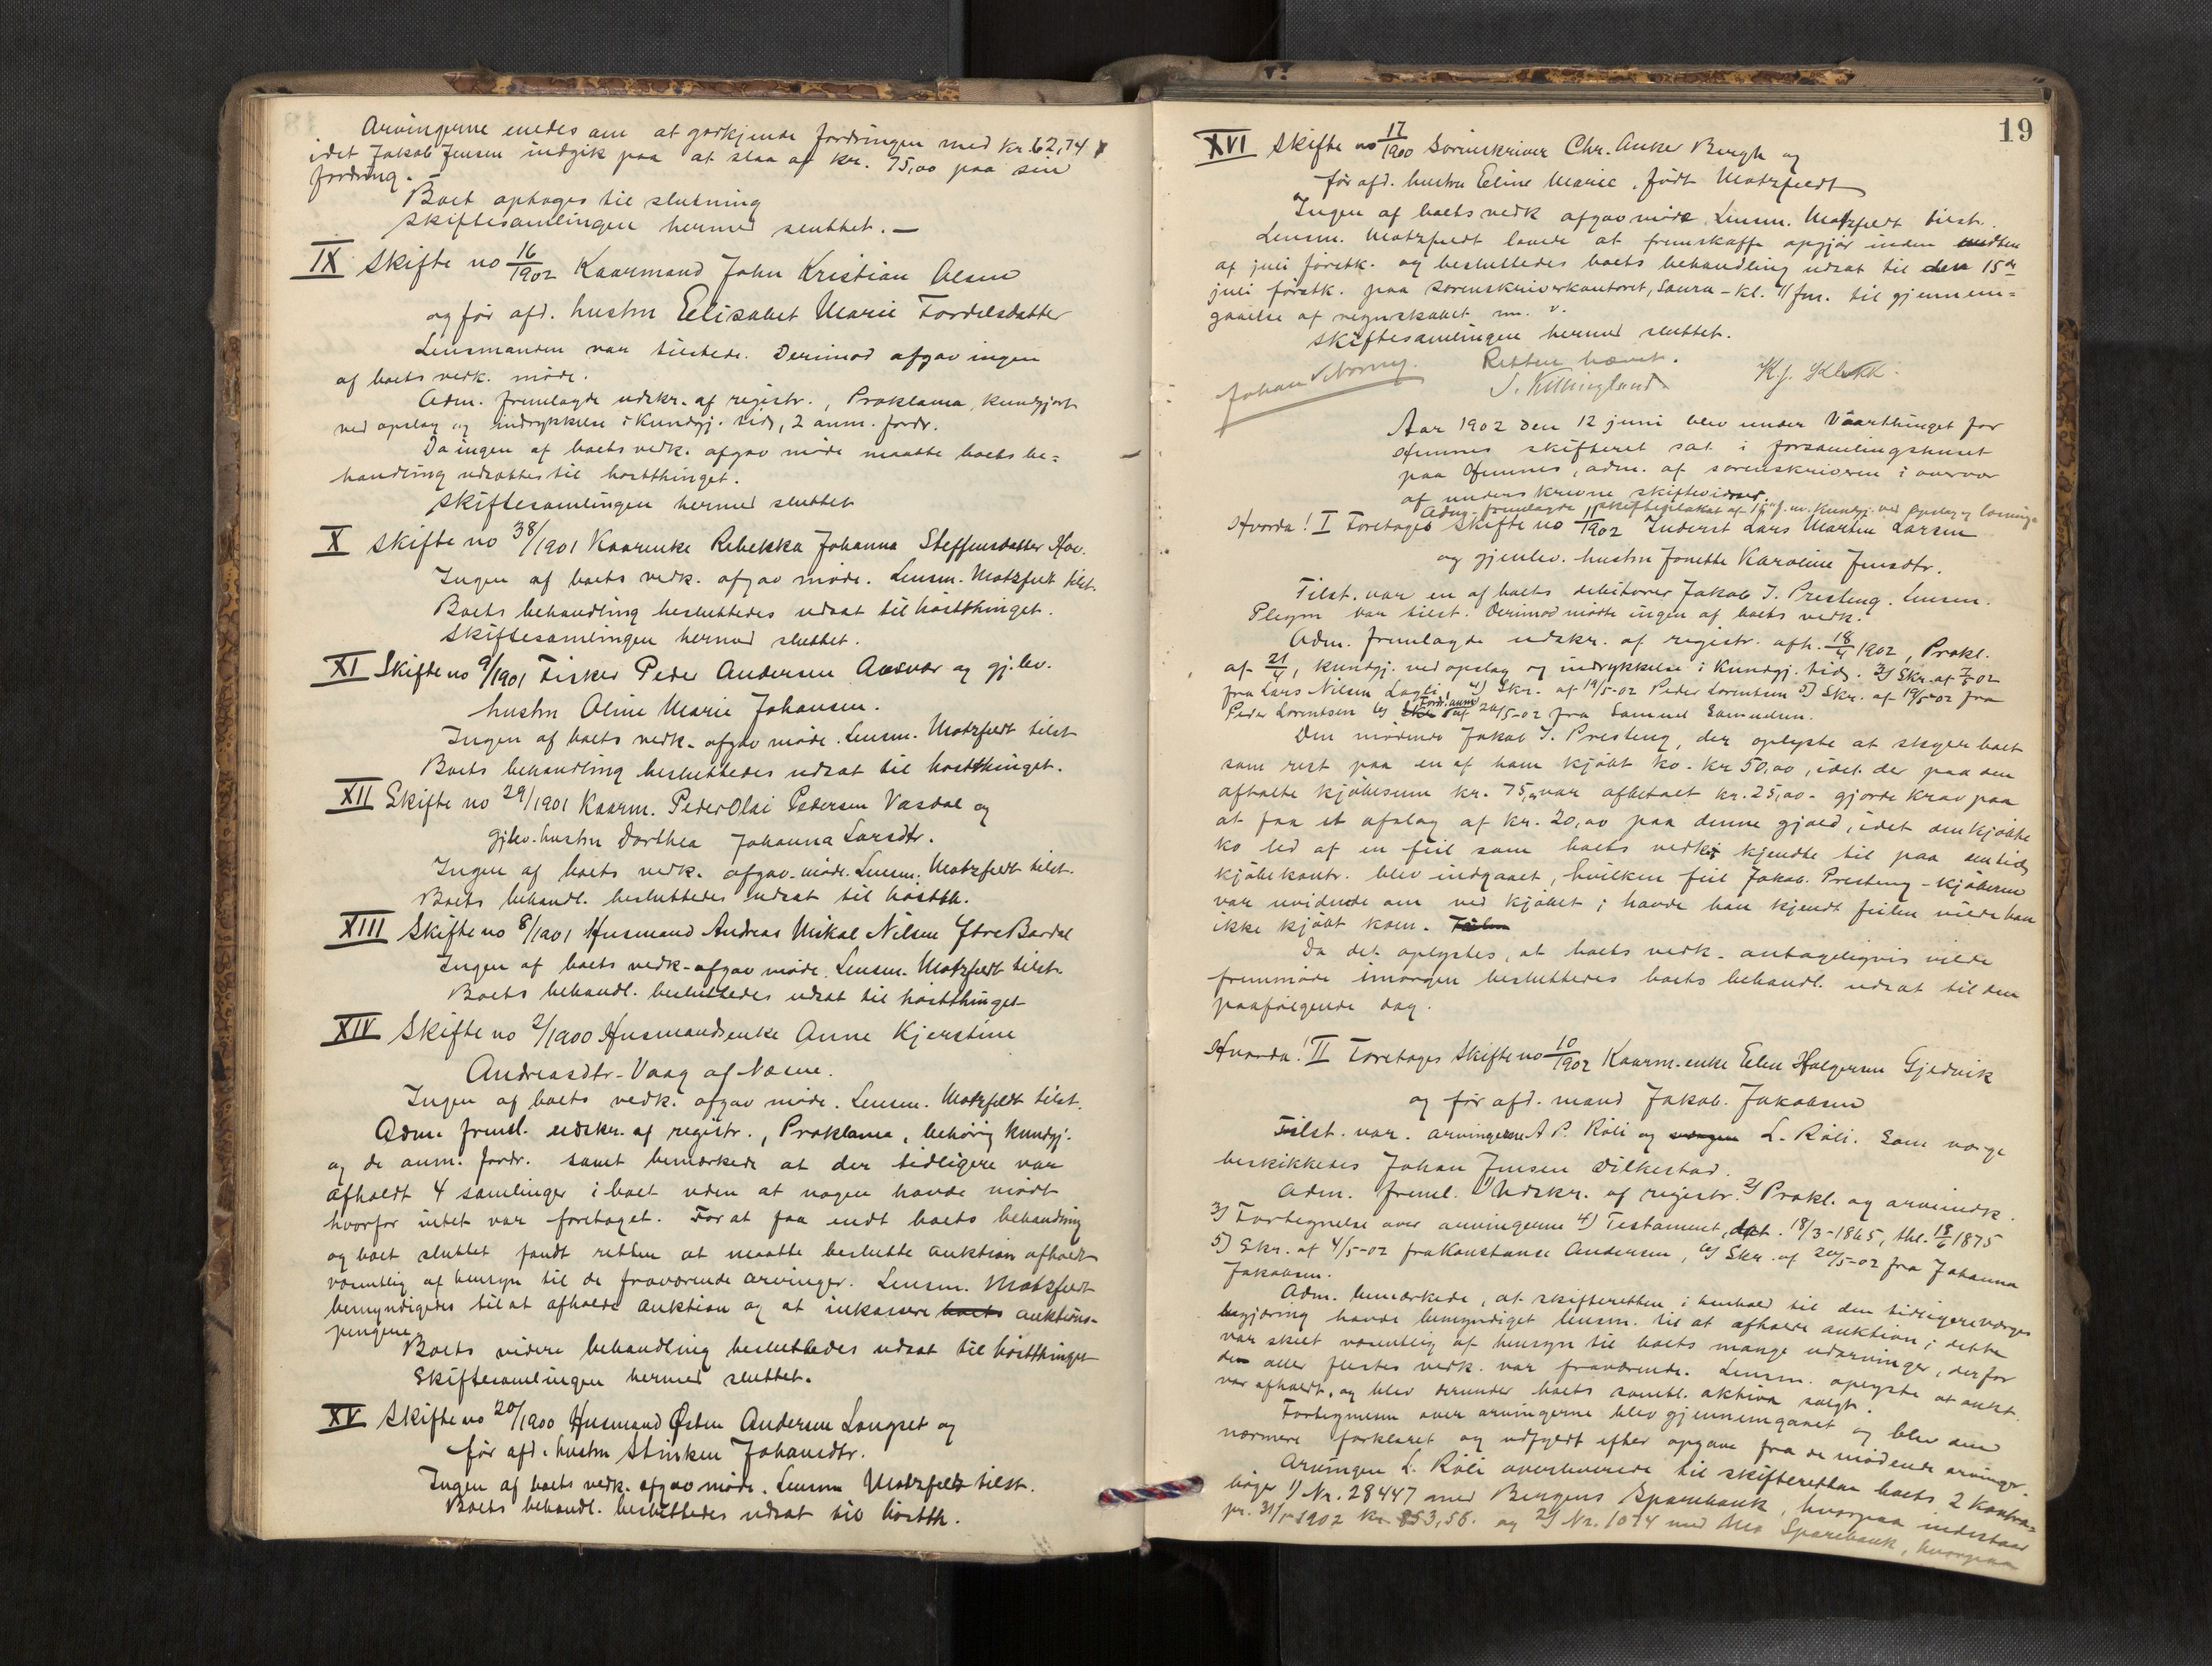 Arvingerne enedes om at godkjende fordringen med kr. 62,74
idet Jakob Jensen indgik paa at slaa af kr. 75,00 paa sin
fordring.
Boet optages til slutning
Skiftesamlingen hermed sluttet. —
IX Skifte no 16/1902 Kaarmand John Kristian Olsen
og før afd. hustru Elisabet Marie Tordelsdatter
Lensmanden var tilstede. Derimod afgav ingen
af boets vedk. møde.
Adm. fremlagde udskr. af registr., Proklama, kundgjort
ved opslag og indrykkelse i Kundgj. tid, 2 anm. fordr.
Da ingen af boets vedk. afgav møde maatte boets be=
handling udsættes til høstthinget.
Skiftesamlingen hermed sluttet
X Skifte no 38/1901 Kaarenke Rebekka Johanna Steffensdatter Hov.
Ingen af boets vedk. afgav møde. Lensm. Motzfeldt tilst.
Boets behandling besluttedes udsat til høstthinget.
Skiftesamlingen hermed sluttet.
XI Skifte no 9/1901 Fisker Peder Andersen Aasvær og gj.lev.
hustru Oline Marie Johansen.
Ingen af boets vedk. afgav møde. Lensm. Motzfeldt tilst
Boets behandling besluttedes udsat til høstthinget.
XII Skifte no 29/1901 Kaarm. Peder Olai Pedersen Vasdal og
gjlev. hustru Dorthea Johanna Larsdtr.
Ingen af boets vedk. afgav møde. Lensm. Motzfeldt tilst.
Boets behandl. besluttedes udsat til høstth.
XIII Skifte no 8/1901 Husmand Andreas Mikal Nilsen Ytre Bardal
Ingen af boets vedk. afgav møde. Lensm. Motzfeldt tilst.
Boets behandl. besluttedes udsat til høstthinget
XIV Skifte no 2/1900 Husmandsenke Anne Kjerstine
Andreasdtr. Vaag af Næsne.
Ingen af boets vedk. afgav møde. Lensm. Motzfeldt tilst.
Adm. freml. udskr. af registr., Proklama, behørig kundgj.
og de anm. fordr. samt bemærkede at der tidligere var
afholdt 4 samlinger i boet uden at nogen havde mødt
hvorfor intet var foretaget. For at faa endt boets behandling
og boet sluttet fandt retten at maatte beslutte auktion afholdt
væsentlig af hensyn til de fraværende arvinger. Lensm. Motzfeldt
bemyndigedes til at afholde auktion og at inkassere boets auktions-
pengene.
Boets videre behandling besluttedes udsat til høstthinget
Skiftesamlingen hermed sluttet.
XV Skifte no 20/1900 Husmand Østen Andersen Langset og
før afd. hustru Stinken Johansdtr.
Ingen af boets vedk. afgav møde. Lensm Motzfeldt tilst.
Boets behandl. besluttedes udsat til høstth.
19
XVI Skifte no 17/1900 Sorenskriver Chr. Anker Bergh og
før afd. hustru Eline Marie, født Motzfeldt
Ingen af boets vedk afgav møde. Lensm. Motzfeldt tilst.
Lensm. Motzfeldt lovede at fremskaffe opgjør inden
af juli førstk. og besluttedes boets behandling udsat til den 15de
juli førstk. paa sorenskriverkontoret, Saura - kl. 11 fm. til gjennem=
gaaelse af regnskabet m. v.
Skiftesamlingen hermed sluttet.
Retten hævet.
Aar 1902 den 12 juni blev under Vaarthinget for
Hemnes skifteret sat i forsamlingshuset
paa Hemnes, adm. af sorenskriveren i overvær
af underskrevne skiftevidner.
Adm. fremlagde skifteplakat af kundgj. ved opslag og læsning.
Hvorda! I Foretages Skifte no 11/1902 Inderst Lars Martin Larsen
og gjenlev. hustru Jonette Karoline Jensdtr.
Tilst. var en af boets debitorer Jakob J. Presteng. Lensm.
Plegm var tilst. Derimod mødte ingen af boets vedk.
Adm. fremlagde udskr. af registr. afh. 18/4 1902, Prokl.
af 21/4, kundgj. ved opslag og indrykkelse i Kundgj. tid. 3) Skr. af 7/5 02
fra Lars Nilsen Lagli, 4) Skr. af 19/5-02 Peder Lorentsen 5) Skr. af 19/5-02 fra
Peder Lorentsen 6) Skr Fordr. anm af 20/5-02 fra Samuel Samuelsen.
Den mødende Jakob J. Presteng, der oplyste at skylde boet
som rest paa en af ham kjøbt ko kr 50,00, idet der paa den
aftalte kjøbesum kr. 75,00 var afbetalt kr. 25,00 - gjorde krav paa
at faa et afslag af kr. 20,00 paa denne gjæld, idet den kjøbte
ko led af en feil som boets vedk. kjendte til paa den tid
kjøbekontr. blev indgaaet, hvilken feil Jakob Presteng - kjøberen
var uvidende om ved kjøbet; havde han kjendt feilen vilde han
ikke kjøbt koen.
Da det oplystes, at boets vedk. antageligvis vilde
fremmøde imorgen besluttedes boets behandl. udsat til den
paafølgende dag.
Hvorda! II Foretages Skifte no 10/1902 Kaarm.enke Elen Holgersen Gjedvik
og før afd. mand Jakob Jakobsen
Tilst. var. arvingerne A P. Røli og L. Røli. Som værge
beskikkedes Johan Jensen Dilkestad.
Adm. freml. 1) Udskr. af registr. 2) Prokl. og arveindk.
3) Fortegnelse over arvingerne 4) Testament, dat. 18/3-1865, thl. 18/6 1875
5) Skr. af 4/5-02 fra Konstanse Andersen, 6) Skr. af 20/5-02 fra Johanna
Jakobsen.
Adm. bemærkede, at skifteretten i henhold til den tidligere værges
begjæring havde bemyndiget lensm. til at afholde auktion; dette
var skeet væsentlig af hensyn til boets mange udarvinger, derfor
den aller flestes vedk. var fraværende. Lensm. oplyste at aukt.
var afholdt, og blev derunder boets samtl. aktiva solgt.
Fortegnelsen over arvingerne blev gjennemgaaet og blev den
nærmere forklaret og udfyldt efter opgave fra de mødende arvinger.
Arvingen L. Røli overleverede til skifteretten boets 2 Kontra=
bøger 1) Nr. 28447 med Bergens Sparebank, hvorpaa indestaar
pr. 31/1 1902 kr. 853,56. og 2) Nr. 1074 med Mo Sparebank, hvorpaa